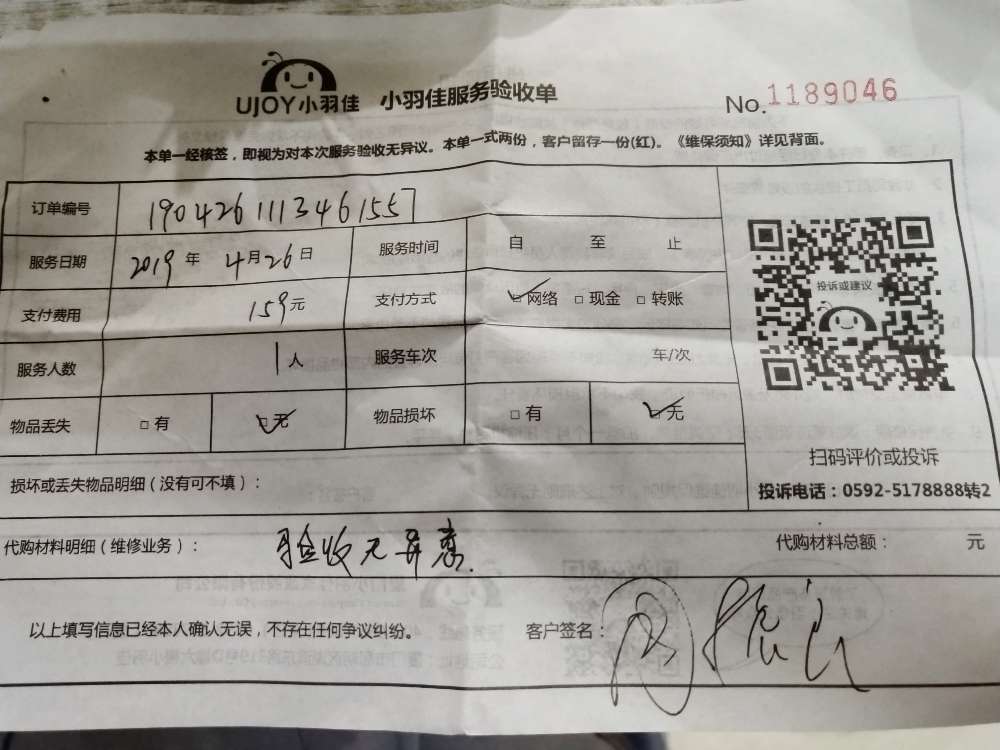 UJOY小羽佳 小羽佳服务验收单 No.1189046
本单一经核签，即视为对本次服务验收无异议。本单一式两份，客户留存一份(红)。《维保须知》详见背面。
订单编号 1904261113461557
服务日期 2019 年 4月26日 服务时间 自 至 止
支付费用 159元 支付方式 网络 □ 现金 □ 转账
投诉或建议
服务人数 1人 服务车次 车/次
物品丢失 □ 有 □ 无 物品损坏 □ 有 □ 无
扫码评价或投诉
损坏或丢失物品明细（没有可不填）：
投诉电话：0592-5178888转2
代购材料明细（维修业务）： 验收无异意. 代购材料总额： 元
以上填写信息已经本人确认无误，不存在任何争议纠纷。 客户签名：